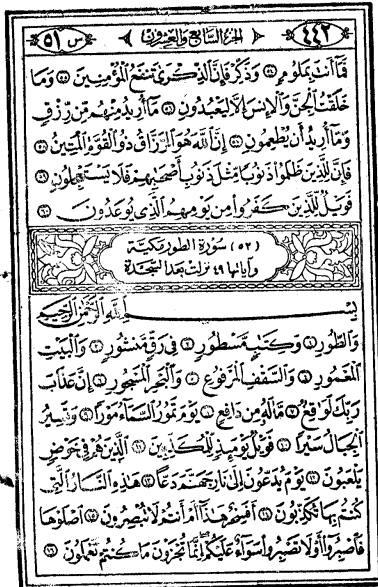 ٤٤٢ ﴿ الجزء السابع والعشرون ﴾ س ٥١
فَمَآ أَنتَ بِمَلُومٍ ٥٤ وَذَكِّرْ فَإِنَّ ٱلذِّكْرَىٰ تَنفَعُ ٱلْمُؤْمِنِينَ ٥٥ وَمَا
خَلَقْتُ ٱلْجِنَّ وَٱلْإِنسَ إِلَّا لِيَعْبُدُونِ ٥٦ مَآ أُرِيدُ مِنْهُم مِّن رِّزْقٍ
وَمَآ أُرِيدُ أَن يُطْعِمُونِ ٥٧ إِنَّ ٱللَّهَ هُوَ ٱلرَّزَّاقُ ذُو ٱلْقُوَّةِ ٱلْمَتِينُ ٥٨
فَإِنَّ لِلَّذِينَ ظَلَمُوا۟ ذَنُوبًا مِّثْلَ ذَنُوبِ أَصْحَٰبِهِمْ فَلَا يَسْتَعْجِلُونِ ٥٩
فَوَيْلٌ لِّلَّذِينَ كَفَرُوا۟ مِن يَوْمِهِمُ ٱلَّذِى يُوعَدُونَ ٦٠
(٥٢) سورة الطور مكية
وآياتها ٤٩ نزلت بعد السجدة
بِسْمِ ٱللَّهِ ٱلرَّحْمَٰنِ ٱلرَّحِيمِ
وَٱلطُّورِ ١ وَكِتَٰبٍ مَّسْطُورٍ ٢ فِى رَقٍّ مَّنشُورٍ ٣ وَٱلْبَيْتِ
ٱلْمَعْمُورِ ٤ وَٱلسَّقْفِ ٱلْمَرْفُوعِ ٥ وَٱلْبَحْرِ ٱلْمَسْجُورِ ٦ إِنَّ عَذَابَ
رَبِّكَ لَوَٰقِعٌ ٧ مَّا لَهُۥ مِن دَافِعٍ ٨ يَوْمَ تَمُورُ ٱلسَّمَآءُ مَوْرًا ٩ وَتَسِيرُ
ٱلْجِبَالُ سَيْرًا ١٠ فَوَيْلٌ يَوْمَئِذٍ لِّلْمُكَذِّبِينَ ١١ ٱلَّذِينَ هُمْ فِى خَوْضٍ
يَلْعَبُونَ ١٢ يَوْمَ يُدَعُّونَ إِلَىٰ نَارِ جَهَنَّمَ دَعًّا ١٣ هَٰذِهِ ٱلنَّارُ ٱلَّتِى
كُنتُم بِهَا تُكَذِّبُونَ ١٤ أَفَسِحْرٌ هَٰذَآ أَمْ أَنتُمْ لَا تُبْصِرُونَ ١٥ ٱصْلَوْهَا
فَٱصْبِرُوٓا۟ أَوْ لَا تَصْبِرُوا۟ سَوَآءٌ عَلَيْكُمْ إِنَّمَا تُجْزَوْنَ مَا كُنتُمْ تَعْمَلُونَ ١٦